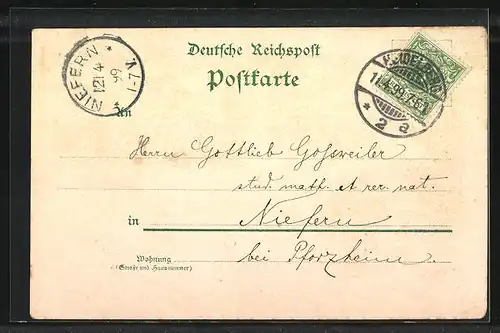 Deutsche Reichspost
Postkarte
NIEFERN
12/4
99
1-7N
HEIDELBERG
11.4.99.7-8N
* 2 a
An
Herrn Gottlieb Gossweiler
stud. math. et rer. nat.
in Niefern
bei Pforzheim.
Wohnung
(Straße und Hausnummer)